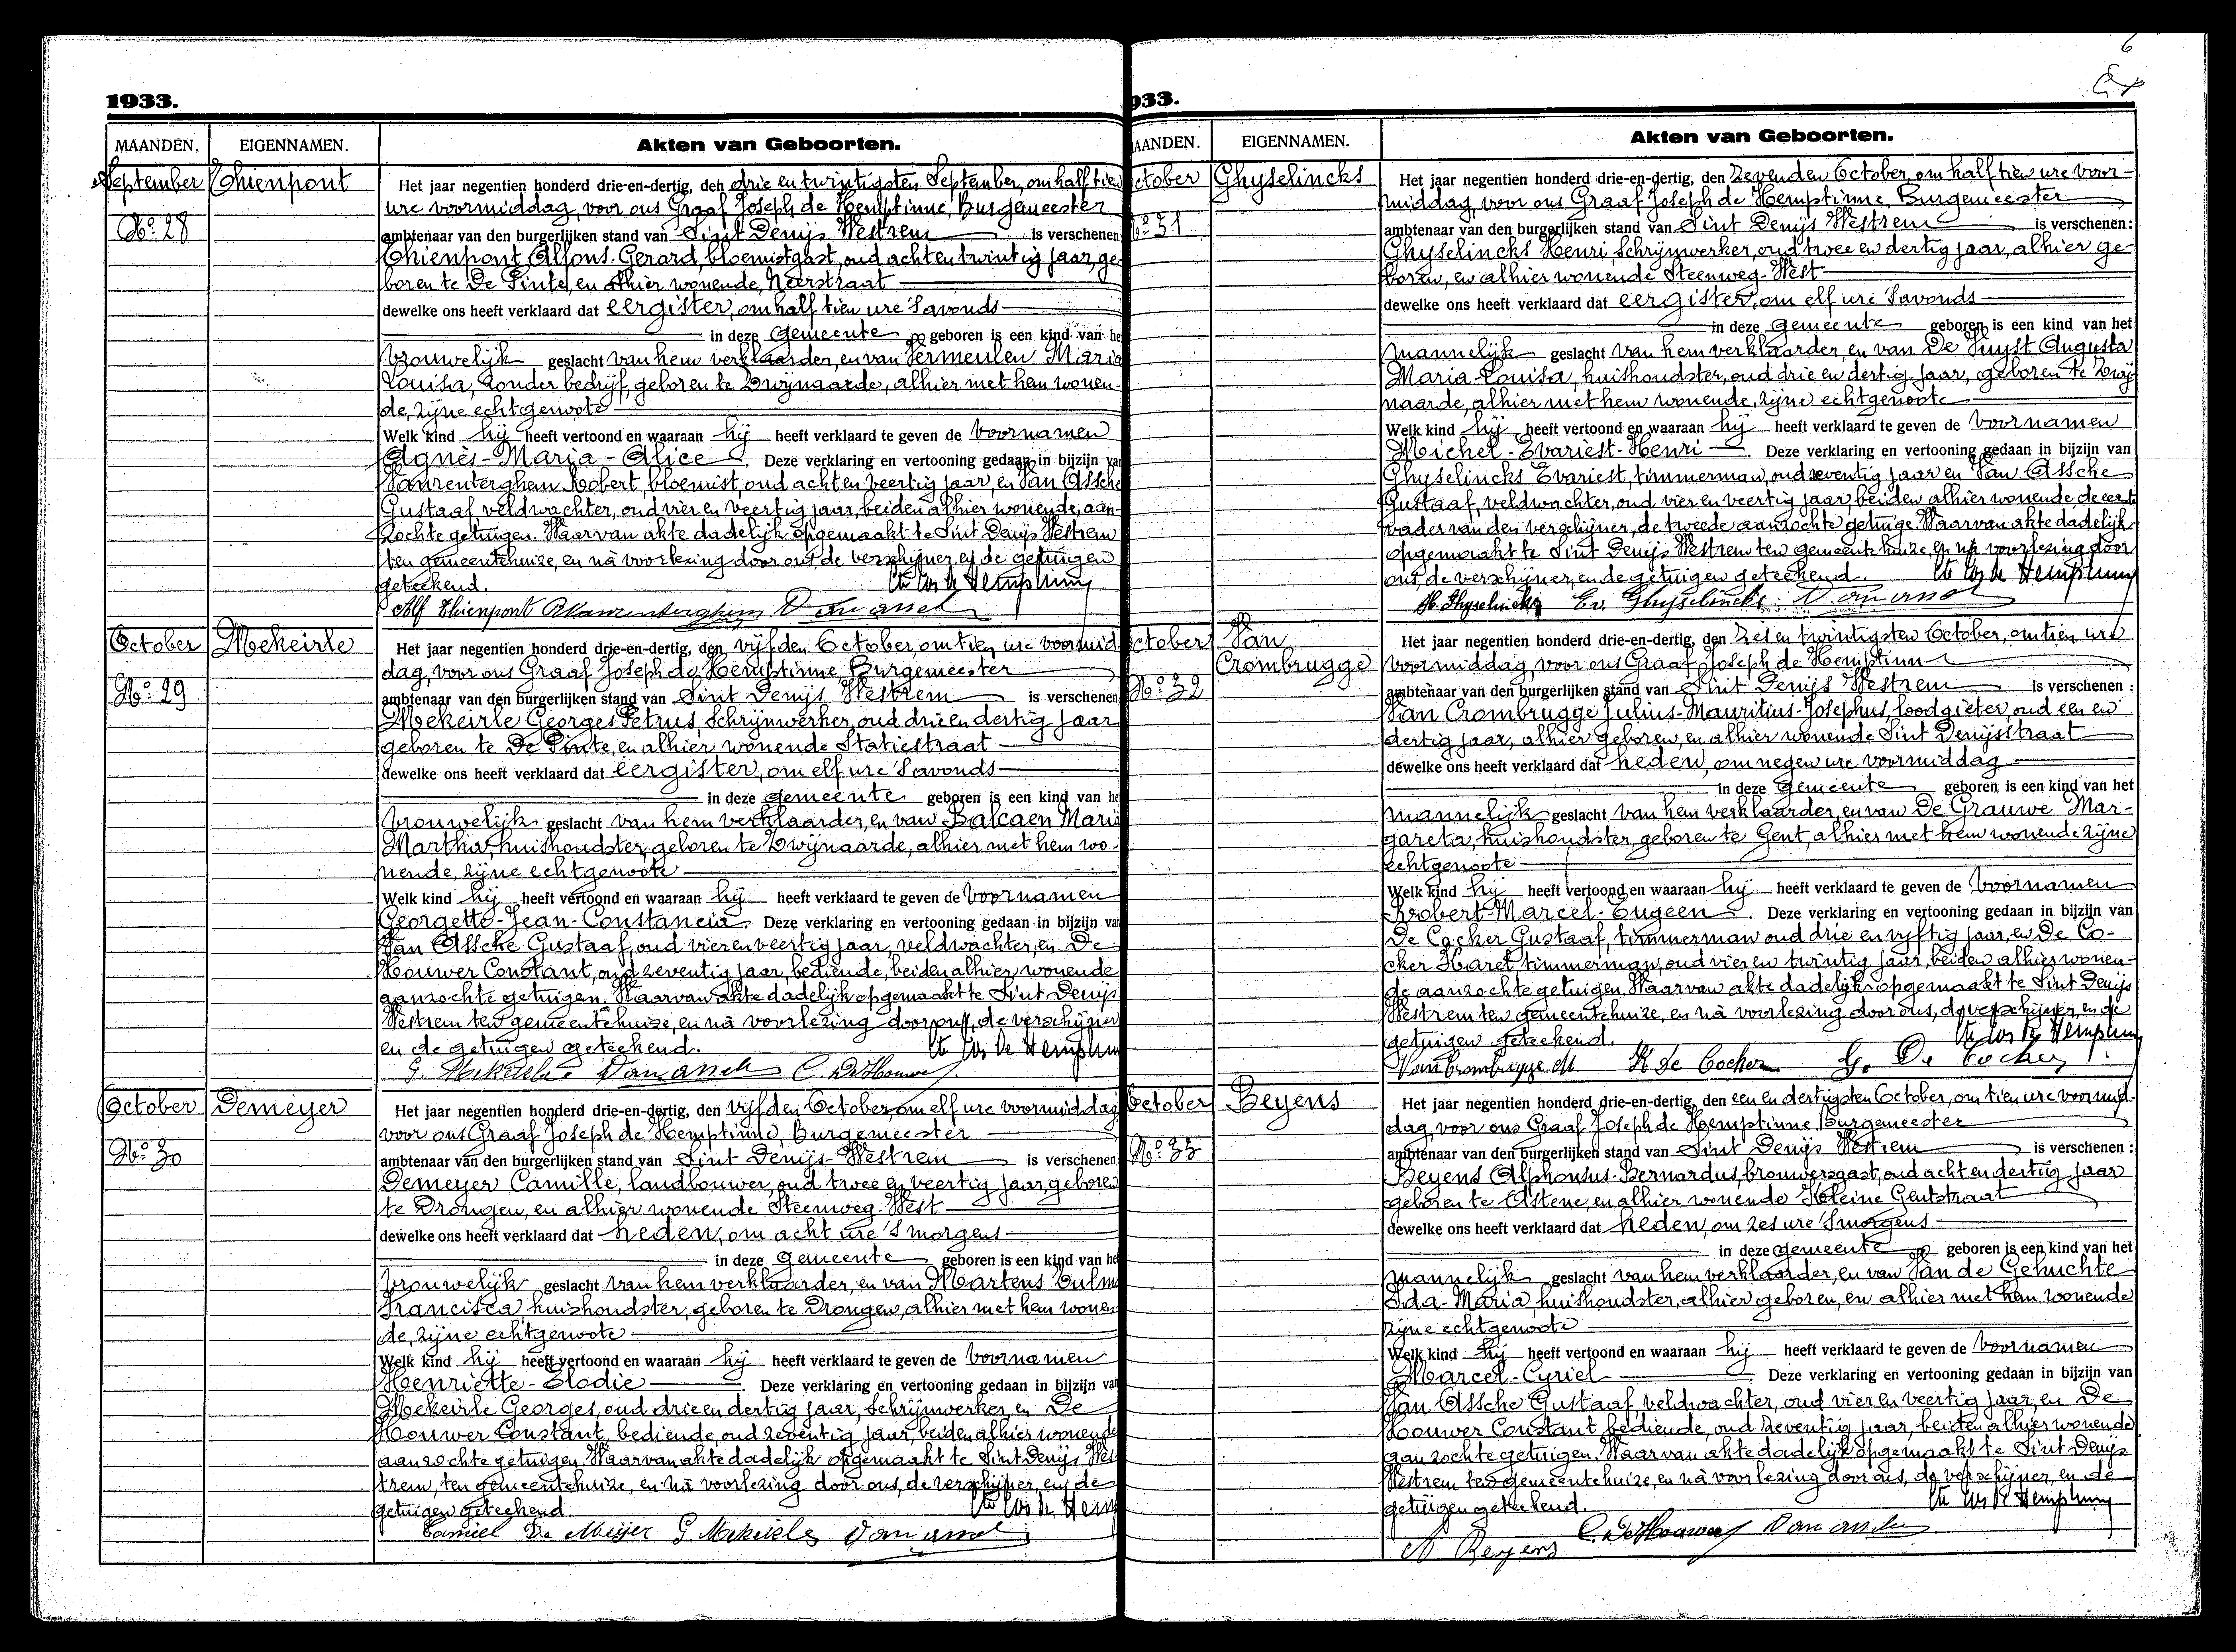 6
1933.
MAANDEN. EIGENNAMEN. Akten van Geboorten.
September Thienpont Het jaar negentien honderd drie-en-dertig, den drie en twintigsten September, om half tien
ure voormiddag, voor ons Graaf Joseph de Hemptinne, Burgemeester
No. 28 ambtenaar van den burgerlijken stand van Sint Denijs Westrem is verschenen
Thienpont Alfons-Gerard, bloemistgast, oud acht en twintig jaar, ge-
boren te De Pinte, en alhier wonende, Neerstraat
dewelke ons heeft verklaard dat eergister, om half tien ure 's avonds
in deze gemeente geboren is een kind van he
vrouwelijk geslacht van hem verklaarder, en van Vermeulen Maria
Louisa, zonder bedrijf, geboren te Zwijnaarde, alhier met hem wonen-
de, zijne echtgenoote
Welk kind hij heeft vertoond en waaraan hij heeft verklaard te geven de voornamen
Agnès-Maria-Alice. Deze verklaring en vertooning gedaan in bijzijn va
Vanrenterghem Robert, bloemist, oud acht en veertig jaar, en Van Assche
Gustaaf, veldwachter, oud vier en veertig jaar, beiden alhier wonende, aan-
zochte getuigen. Waarvan akte dadelijk opgemaakt te Sint Denijs Westrem
ten gemeentehuize, en nà voorlezing door ons, de verschijner, en de getuigen
geteekend. Cte Jos de Hemptinne
Alf Thienpont R Vanrenterghem Vanassche
October Mekeirle Het jaar negentien honderd drie-en-dertig, den vijfden October, om tien ure voormid-
dag, voor ons Graaf Joseph de Hemptinne, Burgemeester
No. 29 ambtenaar van den burgerlijken stand van Sint Denijs Westrem is verschenen
Mekeirle Georges Petrus, Schrijnwerker, oud drie en dertig jaar
geboren te De Pinte, en alhier wonende Statiestraat
dewelke ons heeft verklaard dat eergister, om elf ure 's avonds
in deze gemeente geboren is een kind van he
vrouwelijk geslacht van hem verklaarder, en van Balcaen Maria
Martha, huishoudster, geboren te Zwijnaarde, alhier met hem wo-
nende, zijne echtgenoote
Welk kind hij heeft vertoond en waaraan hij heeft verklaard te geven de voornamen
Georgette-Jean-Constancia. Deze verklaring en vertooning gedaan in bijzijn va
Van Assche Gustaaf, oud vier en veertig jaar, veldwachter, en De
Houwer Constant, oud zeventig jaar, bediende, beiden alhier wonende
aanzochte getuigen. Waarvan akte dadelijk opgemaakt te Sint Denijs
Westrem ten gemeentehuize, en nà voorlezing door ons, de verschijner
en de getuigen geteekend. Cte Jos de Hemptinn
G. Mekeirle Vanassche C. DeHouwer
October Demeyer Het jaar negentien honderd drie-en-dertig, den vijfden October, om elf ure voormiddag
voor ons Graaf Joseph de Hemptinne, Burgemeester
No. 30 ambtenaar van den burgerlijken stand van Sint Denijs-Westrem is verschenen
Demeyer Camille, landbouwer, oud twee en veertig jaar, geboren
te Drongen, en alhier wonende Steenweg-West
dewelke ons heeft verklaard dat heden, om acht ure 's morgens
in deze gemeente geboren is een kind van he
vrouwelijk geslacht van hem verklaarder, en van Martens Zulma
Francisca, huishoudster, geboren te Drongen, alhier met hem wonen
de, zijne echtgenoote
Welk kind hij heeft vertoond en waaraan hij heeft verklaard te geven de voornamen
Henriette-Elodie. Deze verklaring en vertooning gedaan in bijzijn va
Mekeirle Georges, oud drie en dertig jaar, Schrijnwerker, en De
Houwer Constant, bediende, oud zeventig jaar, beiden alhier wonende
aanzochte getuigen. Waarvan akte dadelijk opgemaakt te Sint Denijs Wes
trem, ten gemeentehuize, en nà voorlezing door ons, de verschijner, en de
getuigen geteekend Cte Jos de Hem
Camiel De Meijer G. Mekeirle Vanassche
933.
AANDEN. EIGENNAMEN. Akten van Geboorten.
October Ghyselincks Het jaar negentien honderd drie-en-dertig, den zevenden October, om half tien ure voor-
middag, voor ons Graaf Joseph de Hemptinne, Burgemeester
No. 31 ambtenaar van den burgerlijken stand van Sint Denijs Westrem is verschenen:
Ghyselincks Henri, Schrijnwerker, oud twee en dertig jaar, alhier ge-
boren, en alhier wonende Steenweg-West
dewelke ons heeft verklaard dat eergister, om elf ure 's avonds
in deze gemeente geboren is een kind van het
mannelijk geslacht van hem verklaarder, en van De Vuyst Augusta
Maria-Louisa, huishoudster, oud drie en dertig jaar, geboren te Zwij
naarde, alhier met hem wonende, zijne echtgenoote
Welk kind hij heeft vertoond en waaraan hij heeft verklaard te geven de voornamen
Michel-Evariest-Henri. Deze verklaring en vertooning gedaan in bijzijn van
Ghyselincks Evariest, timmerman, oud zeventig jaar en Van Assche
Gustaaf, veldwachter, oud vier en veertig jaar, beiden alhier wonende, de eerste
vader van den verschijner, de tweede aanzochte getuige. Waarvan akte dadelijk
opgemaakt te Sint Denijs Westrem ten gemeentehuize, en nà voorlezing door
ons, de verschijner, en de getuigen geteekend. Cte Jos de Hemptinne
H. Ghyselincks Ev. Ghyselincks Vanassche
October Van Het jaar negentien honderd drie-en-dertig, den zes en twintigsten October, om tien ure
Crombrugge voormiddag, voor ons Graaf Joseph de Hemptinne
No. 32 ambtenaar van den burgerlijken stand van Sint Denijs Westrem is verschenen:
Van Crombrugge Julius-Mauritius-Josephus, loodgieter, oud een en
dertig jaar, alhier geboren, en alhier wonende Sint Denijsstraat
dewelke ons heeft verklaard dat heden, om negen ure voormiddag
in deze gemeente geboren is een kind van het
mannelijk geslacht van hem verklaarder, en van De Grauwe Mar-
gareta, huishoudster, geboren te Gent, alhier met hem wonende zijne
echtgenoote
Welk kind hij heeft vertoond en waaraan hij heeft verklaard te geven de voornamen
Robert-Marcel-Eugeen. Deze verklaring en vertooning gedaan in bijzijn van
De Cocker Gustaaf, timmerman oud drie en vyftig jaar, en De Co-
cker Karel timmerman, oud vier en twintig jaar, beiden alhier wonen-
de aanzochte getuigen. Waarvan akte dadelijk opgemaakt te Sint Denijs
Westrem ten gemeentehuize, en nà voorlezing door ons, de verschijner, en de
getuigen geteekend. Cte Jos de Hemptinne
Van Crombrugge M K De Cocker G. De Cocker
October Beyens Het jaar negentien honderd drie-en-dertig, den een en dertigsten October, om tien ure voormid-
dag, voor ons Graaf Joseph de Hemptinne, Burgemeester
No. 33 ambtenaar van den burgerlijken stand van Sint Denijs Westrem is verschenen:
Beyens Alphonsus-Bernardus, brouwersgast, oud acht en dertig jaar
geboren te Astene, en alhier wonende Kleine Gentstraat
dewelke ons heeft verklaard dat heden, om zes ure 's morgens
in deze gemeente geboren is een kind van het
mannelijk geslacht van hem verklaarder, en van Van de Gehuchte
Ida-Maria, huishoudster, alhier geboren, en alhier met hem wonende
zijne echtgenoote
Welk kind hij heeft vertoond en waaraan hij heeft verklaard te geven de voornamen
Marcel-Cyriel. Deze verklaring en vertooning gedaan in bijzijn van
Van Assche Gustaaf, veldwachter, oud vier en veertig jaar, en De
Houwer Constant bediende, oud zeventig jaar, beiden alhier wonende
aanzochte getuigen. Waarvan akte dadelijk opgemaakt te Sint Denijs
Westrem ten gemeentehuize, en nà voorlezing door ons, de verschijner, en de
getuigen geteekend. Cte Jos de Hemptinne
C. DeHouwer Vanassche
A Beyens